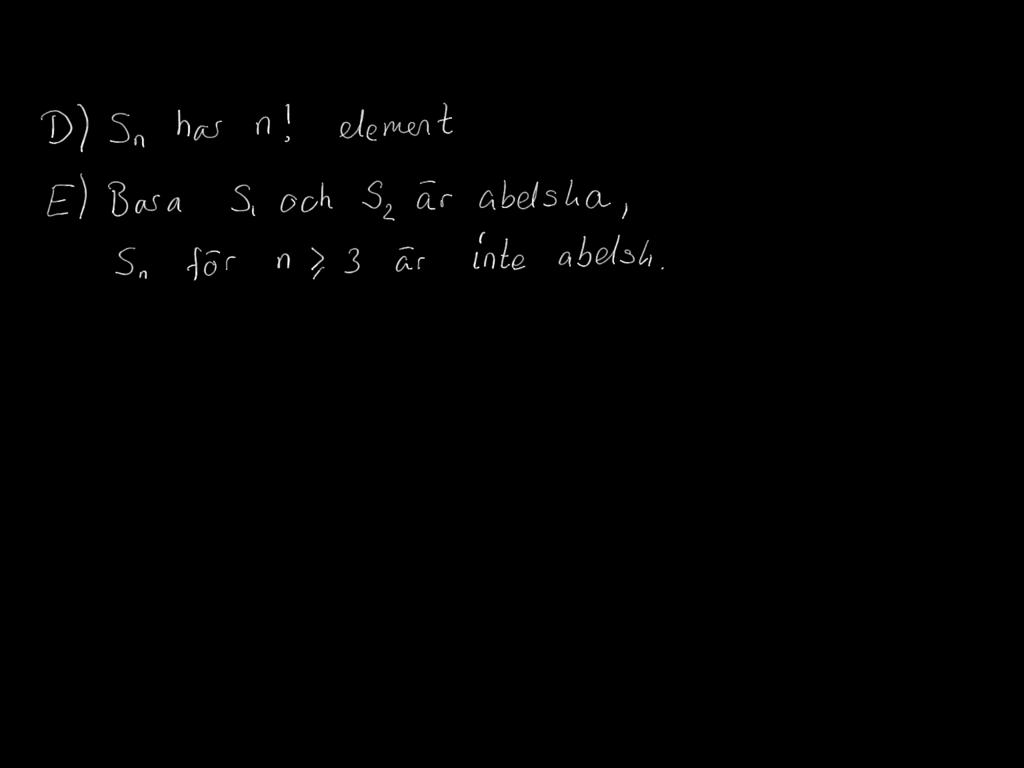 D) Sₙ has n! element
E) Bara S₁ och S₂ är abelska,
Sₙ för n ⩾ 3 är inte abelsk.